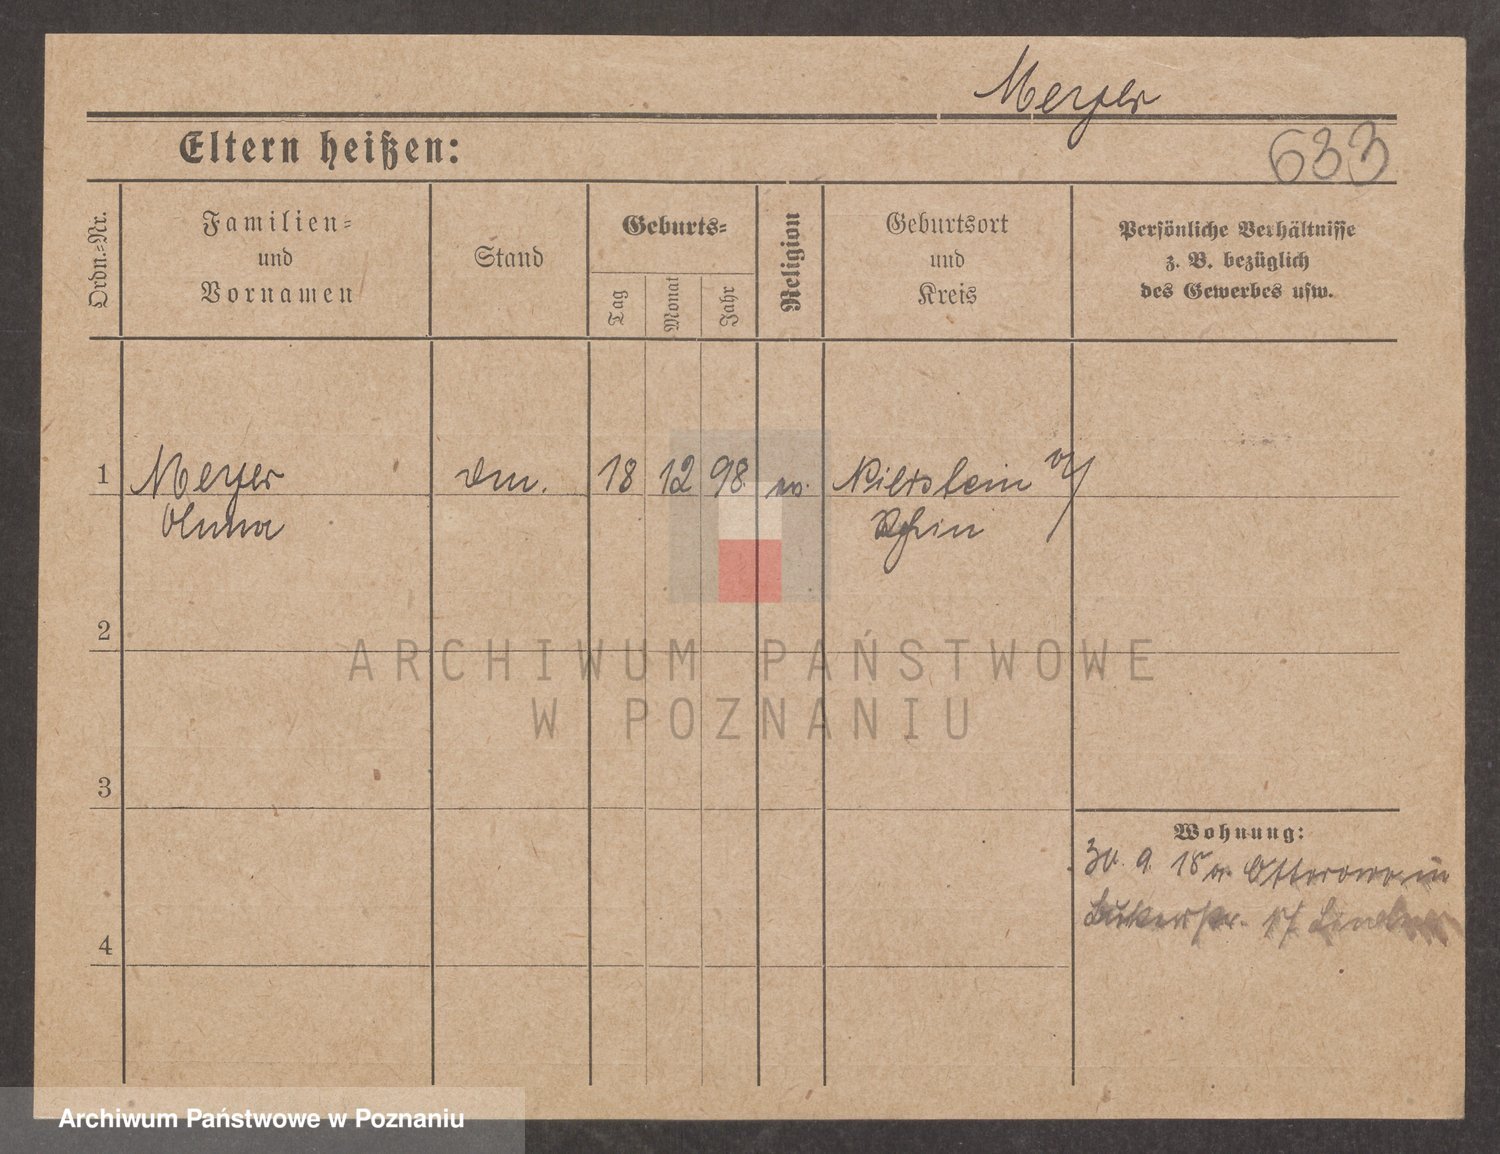 Meyer
633
Eltern heißen:
Ordn.=Nr.
Familien=
und
Vornamen
Stand
Geburts=
Tag
Monat
Jahr
Religion
Geburtsort
und
Kreis
Persönliche Verhältnisse
z. B. bezüglich
des Gewerbes usw.
1 Meyer 18 12 98 ev.
Anna Rhein
2
3
4
Wohnung:
30. 9. 18
ARCHIWUM PAŃSTWOWE
W POZNANIU
Archiwum Państwowe w Poznaniu